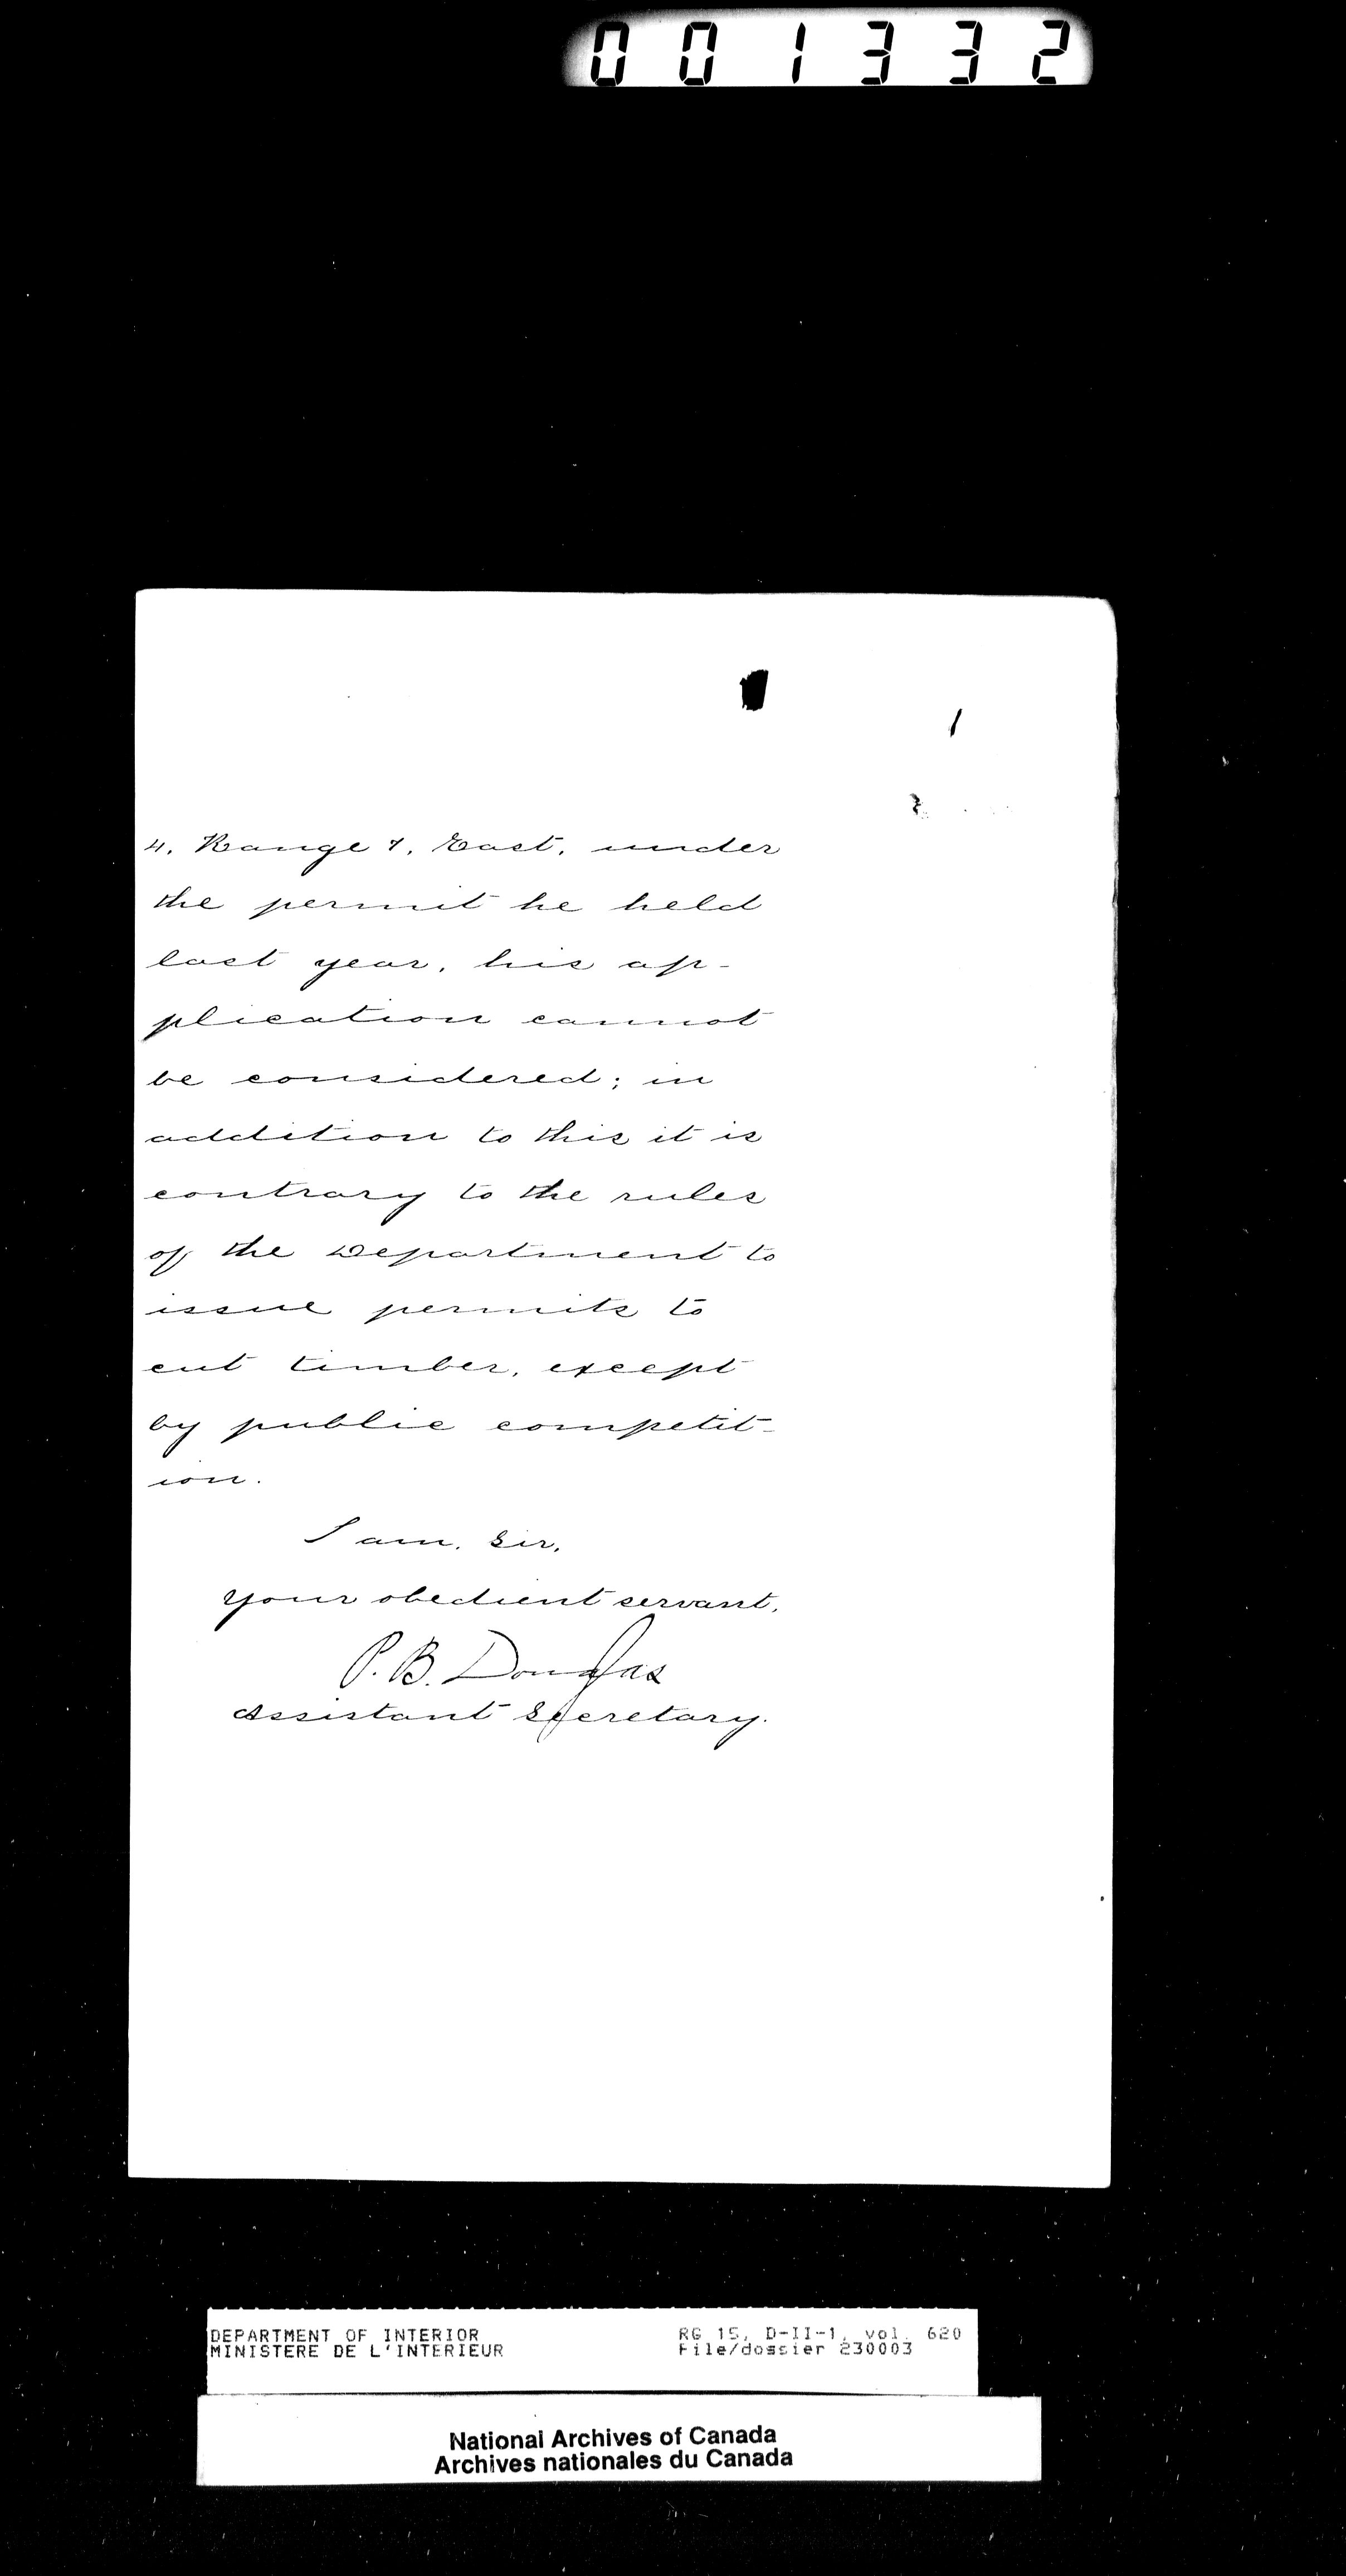 001332
4, Range 7, East, under
the permit he held
last year, his ap-
plication cannot
be considered; in
addition to this it is
contrary to the rules
of the Department to
issue permits to
cut timber, except
by public competit-
ion.
I am, Sir,
Your obedient servant,
P. B. Douglas
Assistant Secretary.
DEPARTMENT OF INTERIOR RG 15, D-II-1, vol. 620
MINISTERE DE L'INTERIEUR File/dossier 230003
National Archives of Canada
Archives nationales du Canada